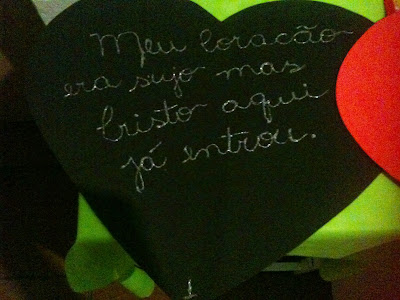 Meu coração
era sujo mas
Cristo aqui
já entrou.
1